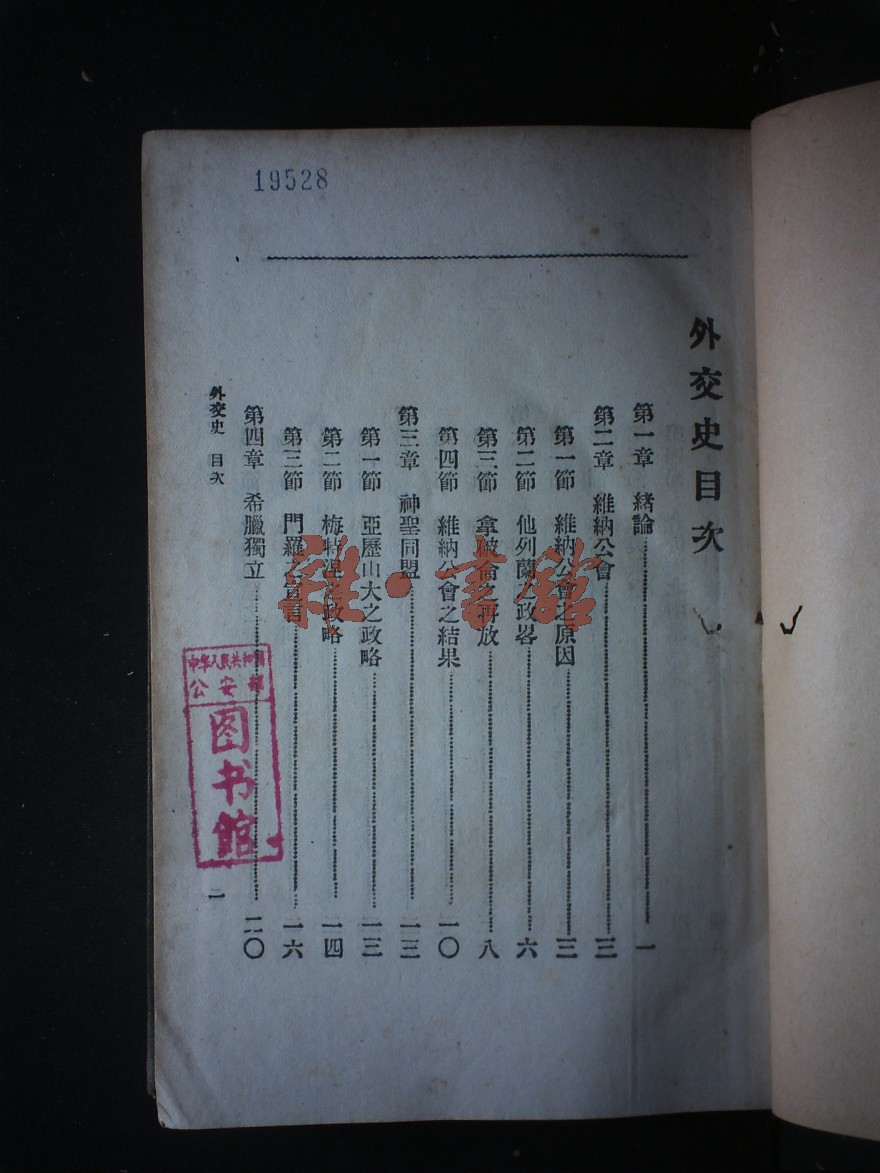 19528
外交史目次
第一章 緒論 一
第二章 維納公會 三
第一節 維納公會之原因 三
第二節 他列蘭之政畧 六
第三節 拿破侖之再放 八
第四節 維納公會之結果 一〇
第三章 神聖同盟 一三
第一節 亞歷山大之政略 一三
第二節 梅特涅之政略 一四
第三節 門羅之宣言 一六
第四章 希臘獨立 二〇
外交史 目次
一
中华人民共和国
公安部
图书馆
雜·書館